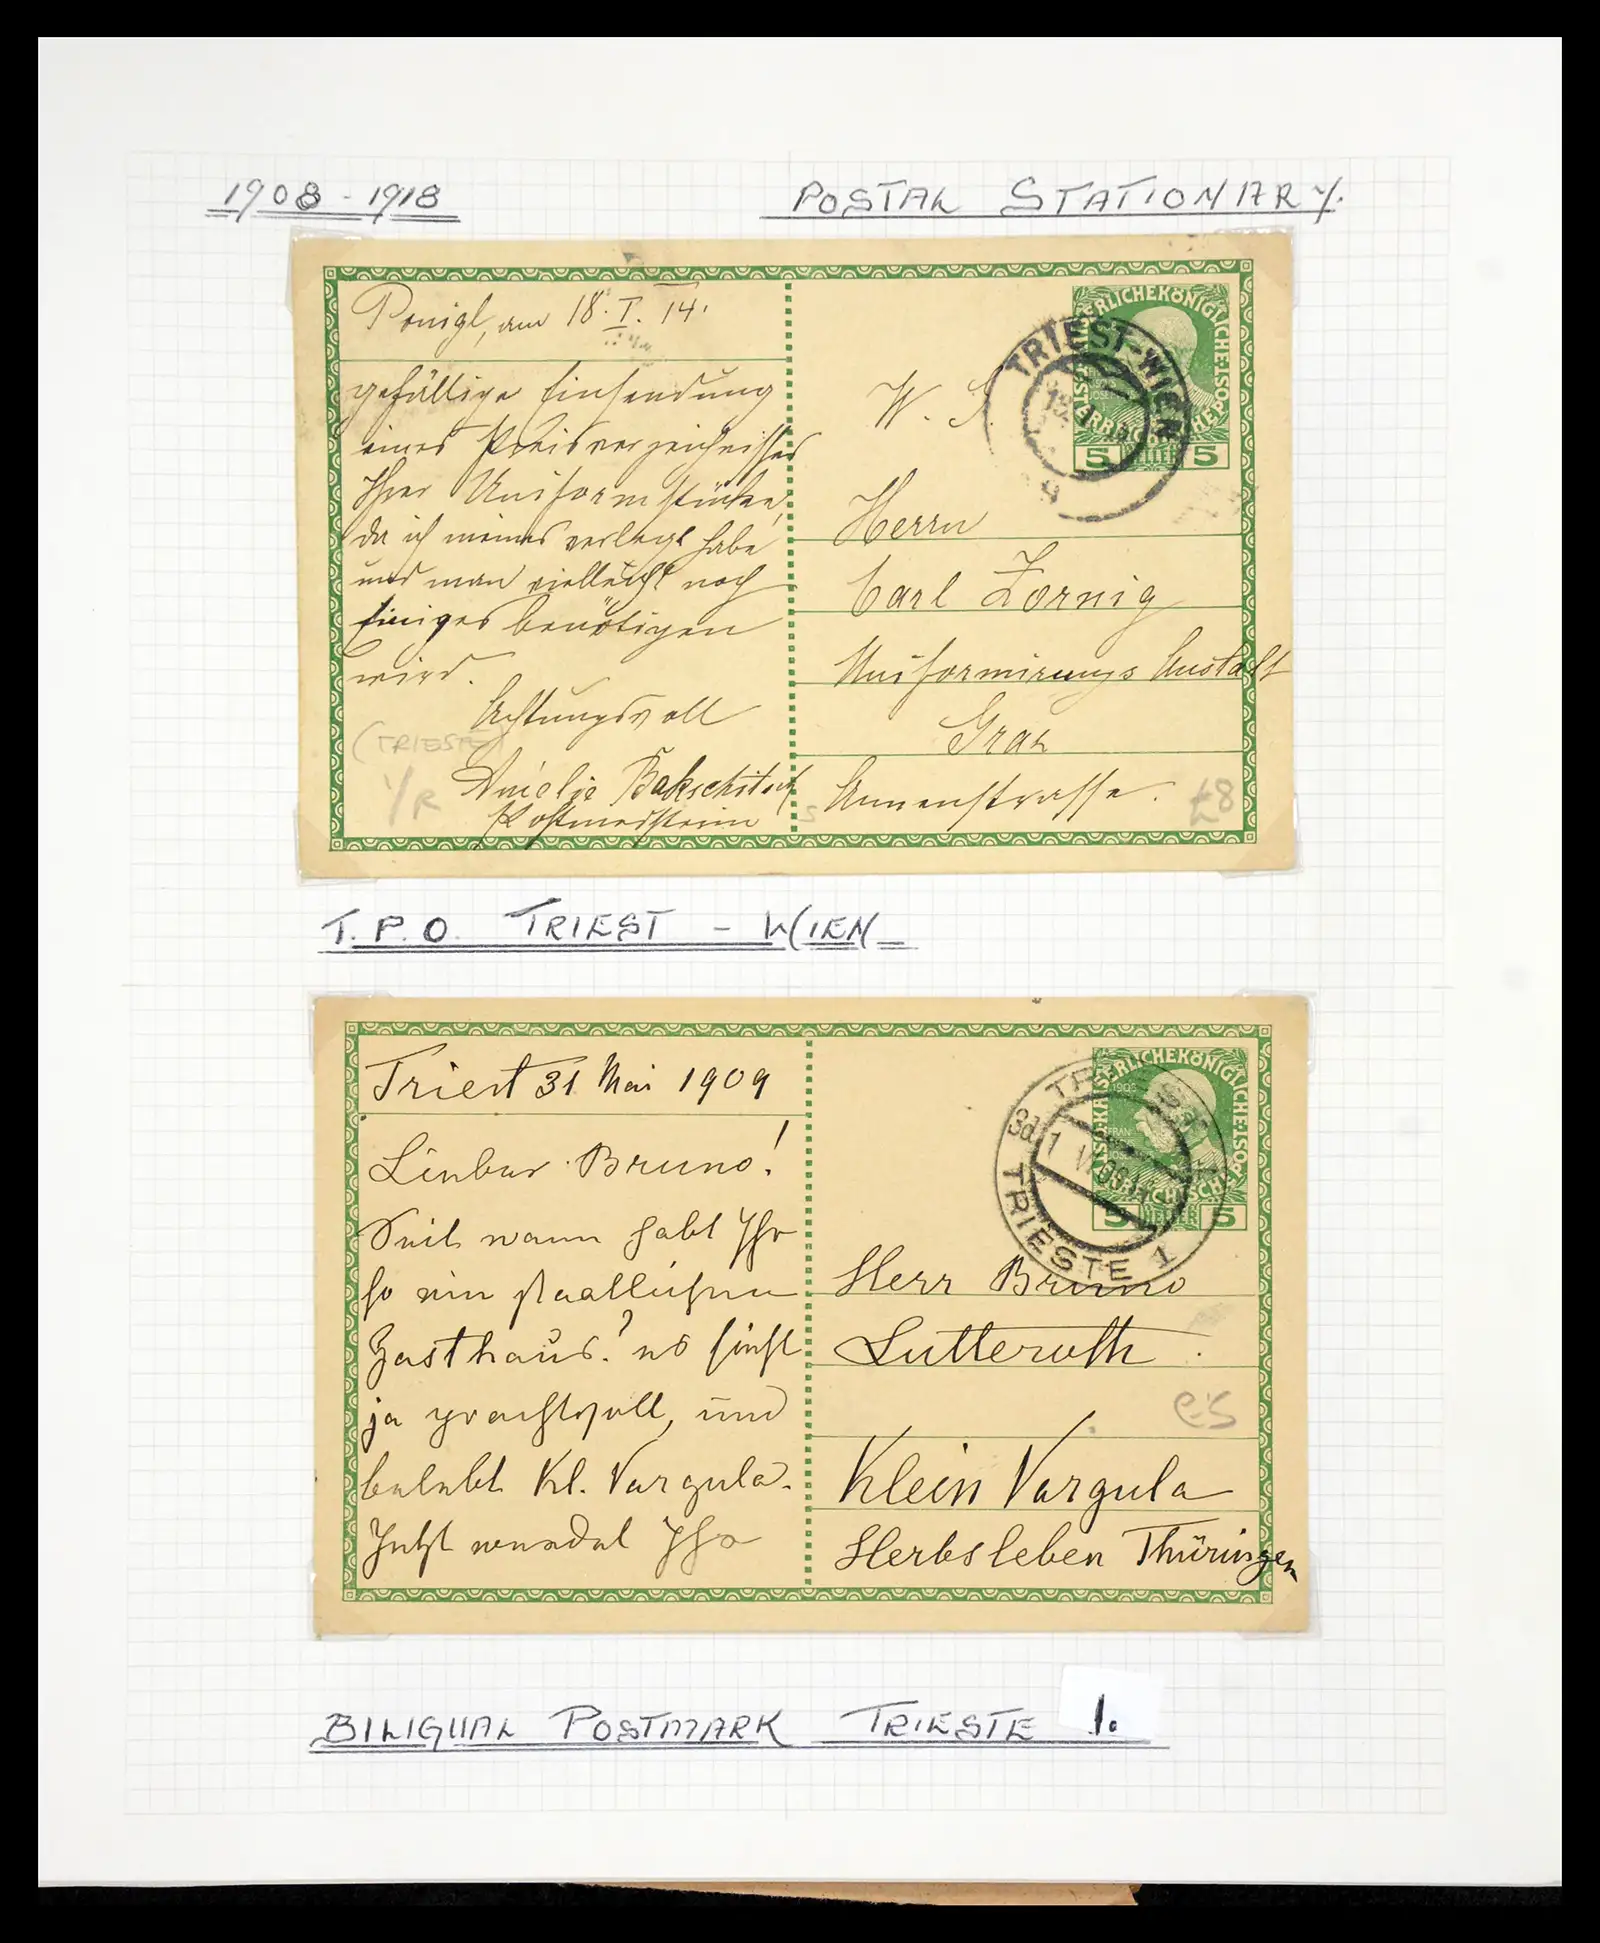 1908 - 1918
POSTAL STATIONARY.
Ponigl, am 18. I. 14.
gefällige Einsendung
eines Preisverzeichnisses
Ihrer Uniformstücke,
da ich meines verlegt habe
und man vielleicht noch
einiges benötigen
wird.
Achtungsvoll
Postmeisterin
(TRIESTE)
1/R
KAISERLICHEKÖNIGLICHE
ÖSTERREICHISCHE POST
5 HELLER 5
TRIEST-WIEN
9
W. S.
Herrn
Carl Zornig
Uniformirungs Anstalt
Graz
Annenstrasse.
£8
T.P.O. TRIEST - WIEN
Triest 31 Mai 1909
Lieber Bruno!
Seit wann habt Ihr
so ein stattliches
Gasthaus? es sieht
ja prachtvoll, und
belebt Kl. Vargula.
Jetzt werdet Ihr
KAISERLICHEKÖNIGLICHE
ÖSTERREICHISCHE POST
1908
5 HELLER 5
TRIEST
3d 1 VI 09
TRIESTE 1
Herr Bruno
Lutteroth.
Klein Vargula
Herbsleben Thüringen
BILIGUAL POSTMARK TRIESTE 1.